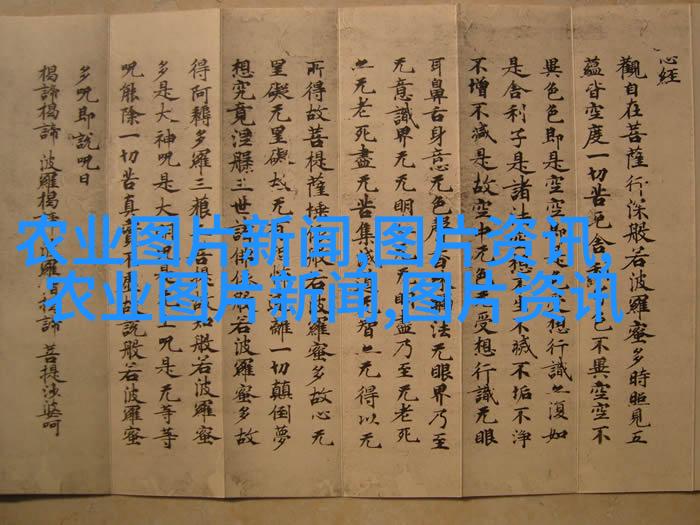 心经
觀自在菩薩行深般若波羅蜜多時照見五
蘊皆空度一切苦厄舍利色不異空空不
異色色即是空空即是色想行識亦復如
是舍利子是諸法不生不滅不垢不淨
不增不減是故空中无色无受想行識无眼
耳鼻舌身意无色聲香法无眼界乃至
无意識界无无明无明盡乃至无老死
亦无老死盡无苦集滅道智亦无得以无
所得故菩提薩埵依般若波羅蜜多故心无
罣礙无罣礙故无離一切顛倒夢
想究竟涅槃三世諸佛依般若波羅蜜多故
得阿耨多羅三藐菩提故知般若波羅蜜
多是大神呪是大明呪是上呪是无等等
呪能除一切苦真實不虛說般若波羅蜜
多呪即說呪曰
揭諦揭諦 波羅揭諦 波羅揭諦 菩提娑婆呵
农业图片新闻,图片资讯,
农业图片新闻,图片资讯